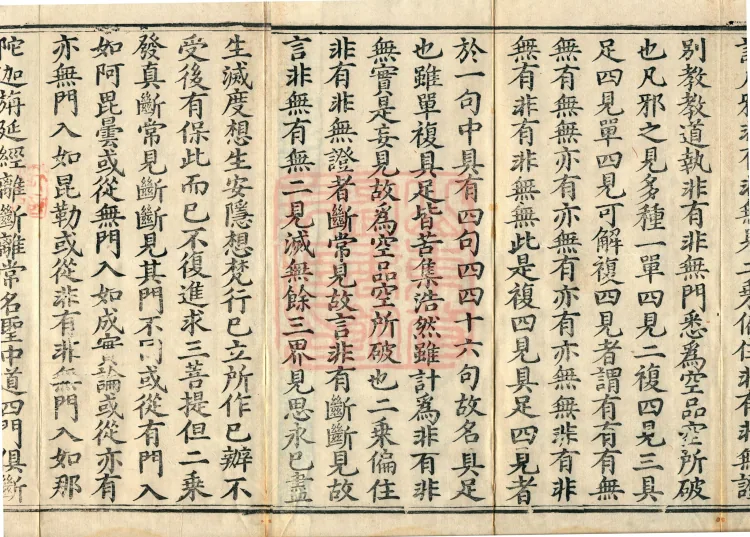 別教教道執非有非無門悉為空品空所破
也凡邪之見多種一單四見二複四見三具
足四見單四見可解複四見者謂有有有無
無有無無亦有亦無有亦有亦無無非有非
無有非有非無無此是複四見具足四見者
於一句中具有四句四四十六句故名具足
也雖單複具足皆苦集浩然雖計爲非有非
無實是妄見故爲空品空所破也二乘偏住
非有非無證者斷常見故言非有斷斷見故
言非無有無二見滅無餘三界見思永已盡
生滅度想生安隱想梵行已立所作已辦不
受後有保此而已不復進求三菩提但二乘
發真斷常見斷斷見其門不同或從有門入
如阿毘曇或從無門入如成實論或從亦有
亦無門入如昆勒或從非有非無門入如那
陀迦旃延經離斷離常名聖中道四門俱斷